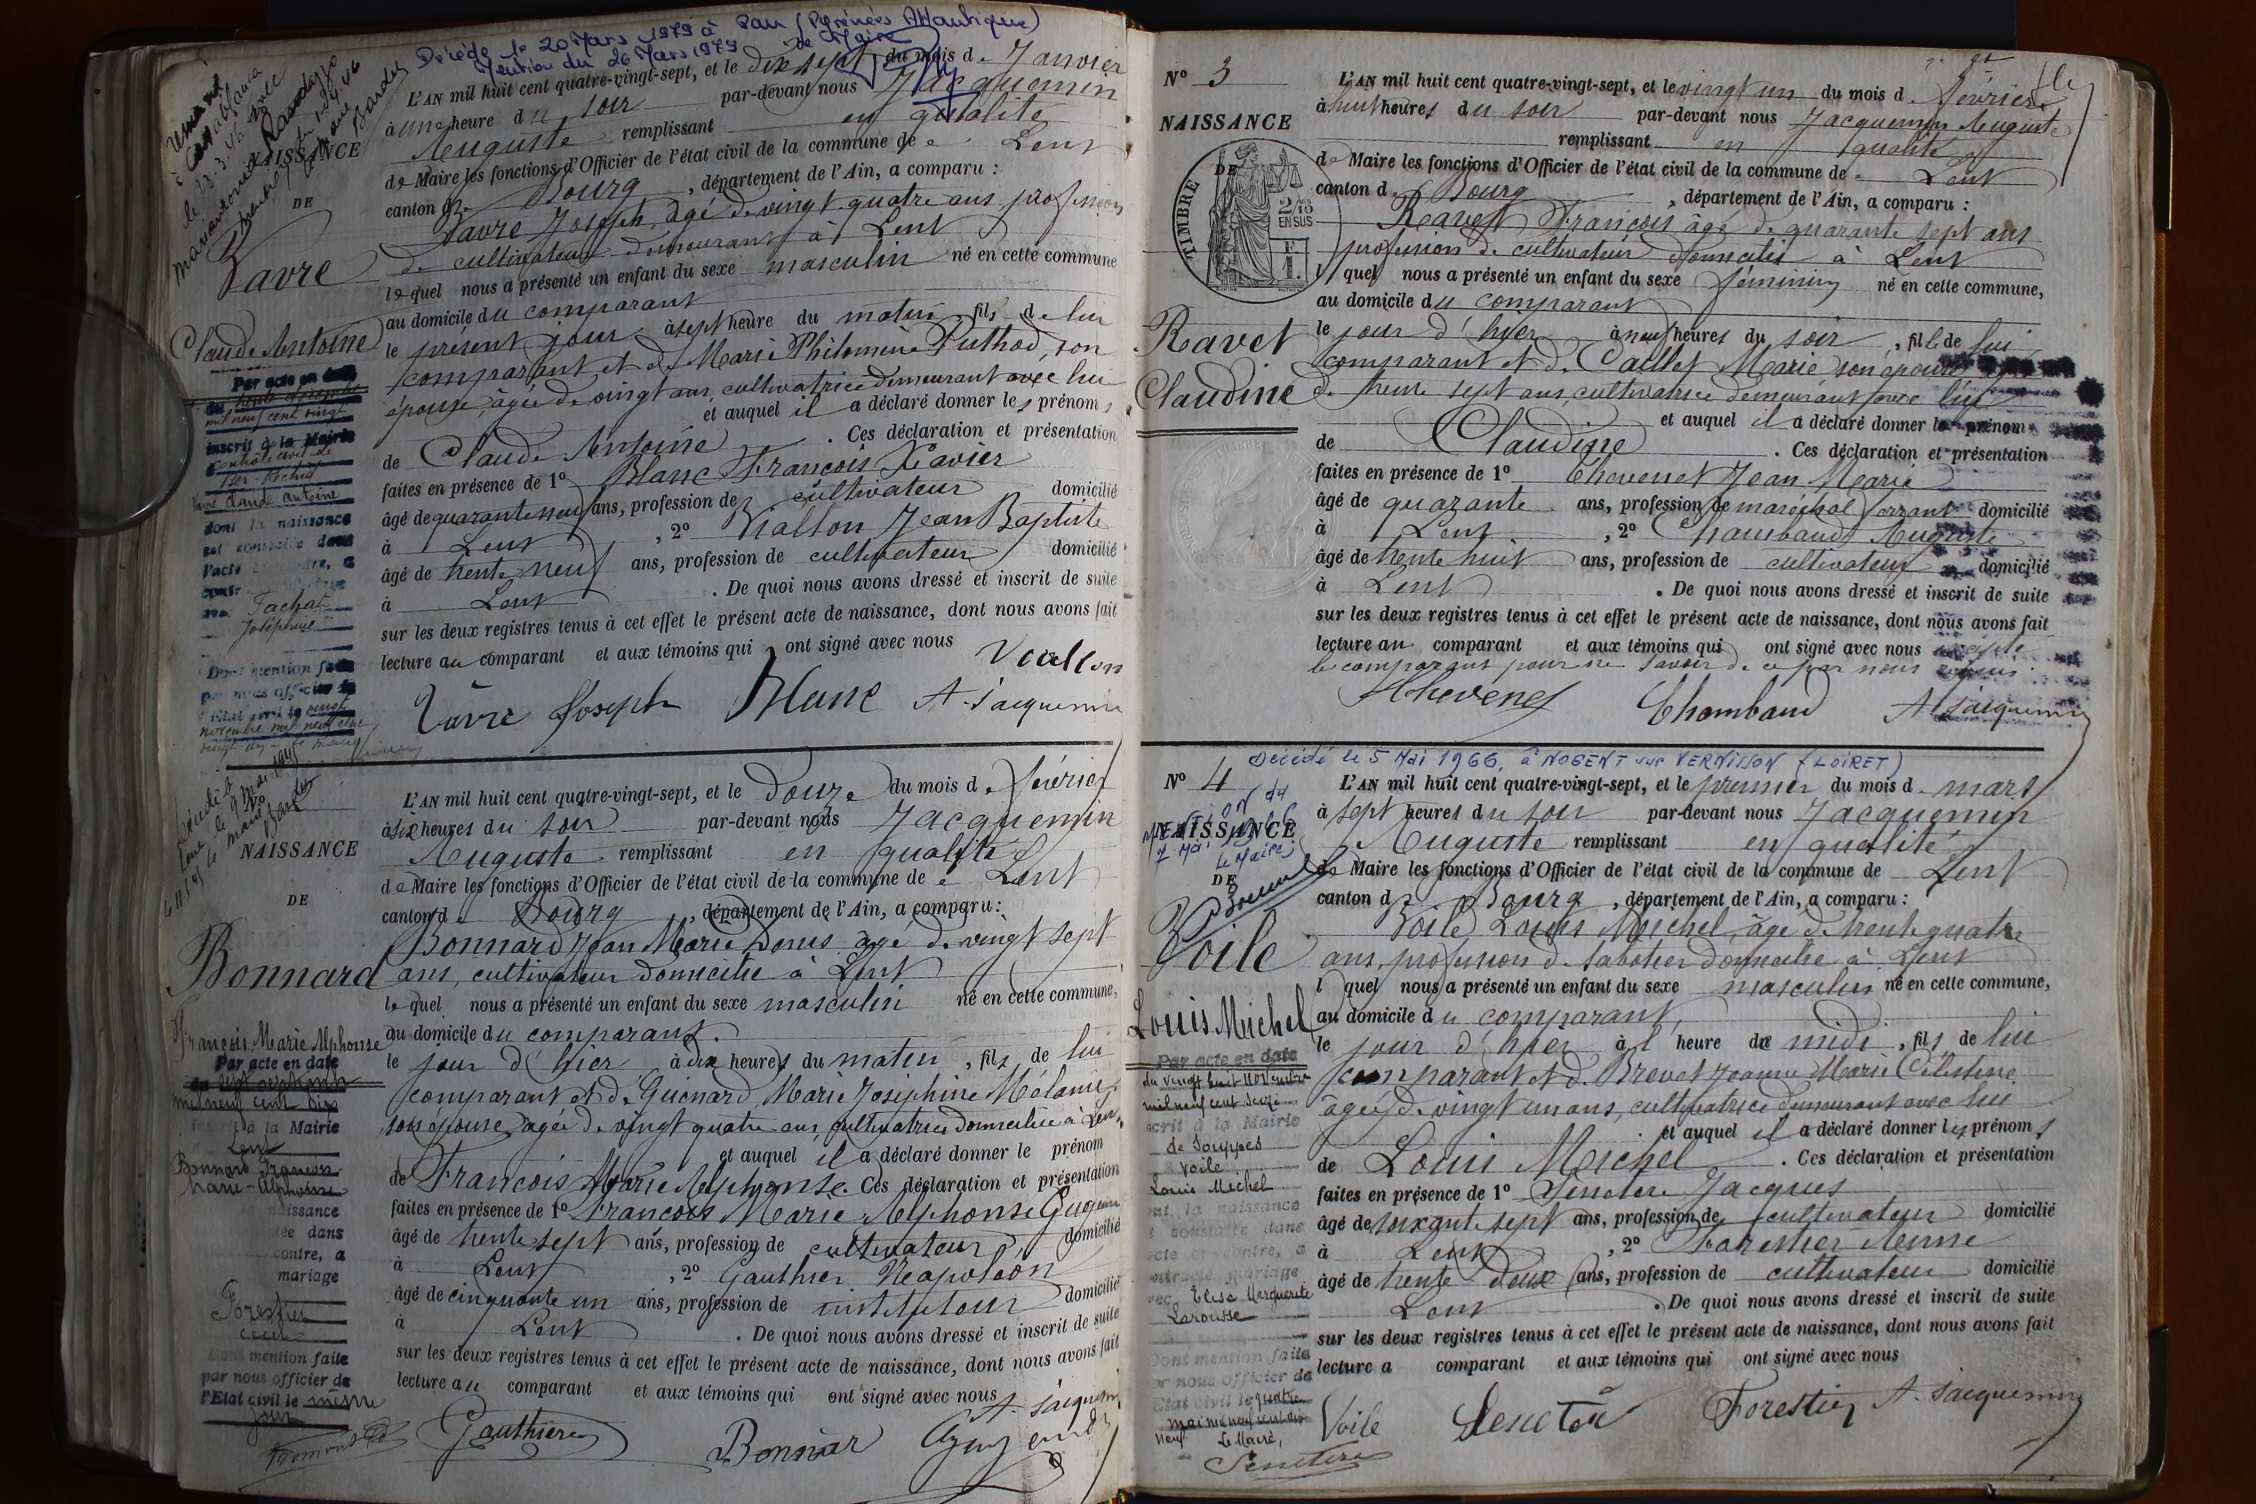 Décédé le 20 Mars 1979 à Pau (Pyrénées Atlantiques)
Mention du 26 Mars 1979 Le Maire
NAISSANCE
DE
Favre
Claude Antoine
Par acte en date
du
mil neuf cent vingt
inscrit à la Mairie
Contrôle civil de
dont la naissance
est constatée dans
l'acte
Tachat
Joséphine
Dont mention faite
par nous officier de
l'Etat civil le vingt
novembre mil neuf cent
L'AN mil huit cent quatre-vingt-sept, et le dix sept du mois de Janvier
à une heure du soir par-devant nous Jacquemin
Auguste remplissant en qualité
de Maire les fonctions d'Officier de l'état civil de la commune de Lent
canton de Bourg, département de l'Ain, a comparu :
Favre Joseph, âgé de vingt quatre ans profession
de cultivateur demeurant à Lent
lequel nous a présenté un enfant du sexe masculin né en cette commune
au domicile du comparant
le présent jour à sept heure du matin, fils de lui
comparant et de Marie Philomène Puthod, son
épouse, âgée de vingt ans, cultivatrice demeurant avec lui
et auquel il a déclaré donner les prénoms
de Claude Antoine. Ces déclaration et présentation
faites en présence de 1° Blanc François Xavier
âgé de quarante neuf ans, profession de cultivateur domicilié
à Lent, 2° Viallon Jean Baptiste
âgé de trente neuf ans, profession de cultivateur domicilié
à Lent. De quoi nous avons dressé et inscrit de suite
sur les deux registres tenus à cet effet le présent acte de naissance, dont nous avons fait
lecture au comparant et aux témoins qui ont signé avec nous
Viallon
Favre Joseph Blanc A Jacquemin
NAISSANCE
DE
Bonnard
François Marie Alphonse
Par acte en date
du sept septembre
mil neuf cent dix
inscrit à la Mairie
Lent
Bonnard François
Marie-Alphonse
naissance
dans
contre, a
mariage
Forestier
Dont mention faite
par nous officier de
l'Etat civil le même
jour
L'AN mil huit cent quatre-vingt-sept, et le douze du mois de février
à six heures du soir par-devant nous Jacquemin
Auguste remplissant en qualité
de Maire les fonctions d'Officier de l'état civil de la commune de Lent
canton de Bourg, département de l'Ain, a comparu :
Bonnard Jean Marie Denis âgé de vingt sept
ans, cultivateur domicilié à Lent
lequel nous a présenté un enfant du sexe masculin né en cette commune,
au domicile du comparant.
le jour d'hier à dix heures du matin, fils de lui
comparant et de Guénard Marie Joséphine Mélanie,
son épouse, âgée de vingt quatre ans, cultivatrice domiciliée à Lent
et auquel il a déclaré donner le prénom
de François Marie Alphonse. Ces déclaration et présentation
faites en présence de 1° François Marie Alphonse
âgé de trente sept ans, profession de cultivateur domicilié
à Lent, 2° Gauthier Napoléon
âgé de cinquante un ans, profession de instituteur domicilié
à Lent. De quoi nous avons dressé et inscrit de suite
sur les deux registres tenus à cet effet le présent acte de naissance, dont nous avons fait
lecture au comparant et aux témoins qui ont signé avec nous
A Jacquemin
Gauthier Bonnar
N° 3
NAISSANCE
DE
TIMBRE
2/10 EN SUS
Ravet
Claudine
L'AN mil huit cent quatre-vingt-sept, et le vingt un du mois de février
à neuf heures du soir par-devant nous Jacquemin Auguste
remplissant en qualité
de Maire les fonctions d'Officier de l'état civil de la commune de Lent
canton de Bourg, département de l'Ain, a comparu :
Ravet François âgé de quarante sept ans
profession de cultivateur domicilié à Lent
lequel nous a présenté un enfant du sexe féminin né en cette commune,
au domicile du comparant
le jour d'hier à neuf heures du soir, fille de lui
comparant et de Caillet Marie son épouse
de trente sept ans, cultivatrice demeurant avec lui
et auquel il a déclaré donner le prénom
de Claudine. Ces déclaration et présentation
faites en présence de 1° Chevenet Jean Marie
âgé de quarante ans, profession de maréchal ferrant domicilié
à Lent, 2° Chambaud Auguste
âgé de trente huit ans, profession de cultivateur domicilié
à Lent. De quoi nous avons dressé et inscrit de suite
sur les deux registres tenus à cet effet le présent acte de naissance, dont nous avons fait
lecture au comparant et aux témoins qui ont signé avec nous
le comparant pour ne savoir de ce par nous requis
Chevenet Chambaud A Jacquemin
Décédé le 5 Mai 1966, à NOGENT sur VERNISSON (LOIRET)
N° 4
MENTION du
NAISSANCE
Le Maire
DE
Voile
Louis Michel
Par acte en date
du vingt huit novembre
mil neuf cent seize
inscrit à la Mairie
de Souppes
Voile
Louis Michel
dont la naissance
est constatée dans
l'acte ci-contre, a
contracté mariage
avec Elisa Marguerite
Larousse
Dont mention faite
par nous officier de
l'Etat civil le quatre
mai mil neuf cent dix
neuf Le Maire,
Senetère
L'AN mil huit cent quatre-vingt-sept, et le premier du mois de mars
à sept heures du soir par-devant nous Jacquemin
Auguste remplissant en qualité
de Maire les fonctions d'Officier de l'état civil de la commune de Lent
canton de Bourg, département de l'Ain, a comparu :
Voile Louis Michel, âgé de trente quatre
ans, profession de sabotier domicilié à Lent
lequel nous a présenté un enfant du sexe masculin né en cette commune,
au domicile du comparant,
le jour d'hier à l'heure de midi, fils de lui
comparant et de Brevet Jeanne Marie Célestine
âgée de vingt un ans, cultivatrice demeurant avec lui
et auquel il a déclaré donner les prénoms
de Louis Michel. Ces déclaration et présentation
faites en présence de 1° Jacques
âgé de soixante sept ans, profession de cultivateur domicilié
à Lent, 2° Forestier
âgé de trente deux ans, profession de cultivateur domicilié
Lent. De quoi nous avons dressé et inscrit de suite
sur les deux registres tenus à cet effet le présent acte de naissance, dont nous avons fait
lecture a comparant et aux témoins qui ont signé avec nous
Voile Forestier A Jacquemin